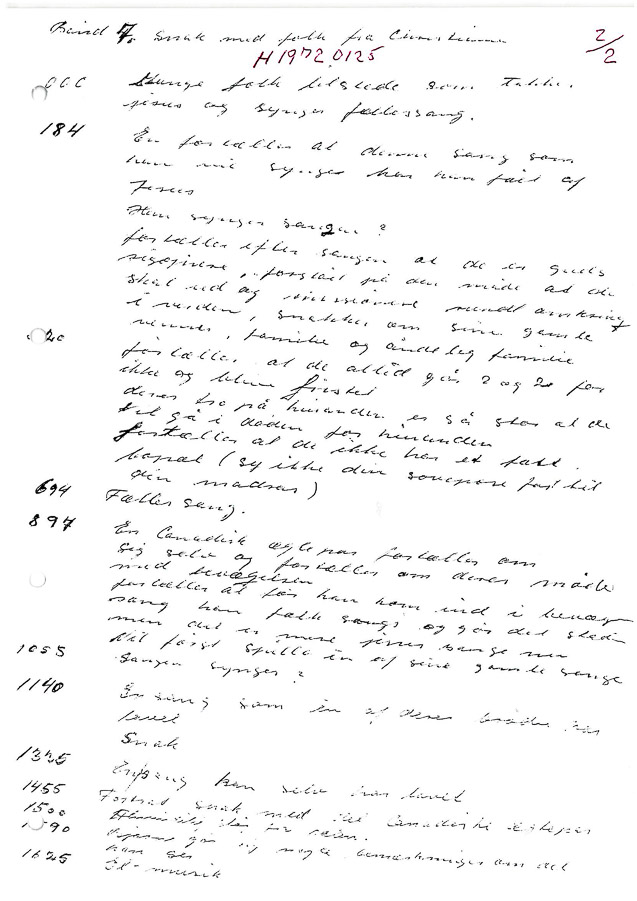 Bånd 7. Snak med folk fra Christiania 2/2
H1972.0125
000 Mange folk tilstede som takke.
jesus og synger fællessang.
184 En fortæller at denne sang som
hun nu synger har hun fået af
Jesus
Hun synger sangen ?
fortæller efter sangen at de er guds
sigøjnere, forstået på den måde at de
skal ud og missionere rundt omkring
i verden, snakker om sine gamle
venner, familie og åndelig familie
20 fortæller at de altid går 2 og 2 for
ikke og blive fristet
deres tro på hinanden er så stor at de
vil gå i døden for hinanden
fortæller at de ikke har et fast
bopæl (sy ikke din sovepose fast til
din madras)
694 Fælles sang.
897 En Canadisk ægtepar fortæller om
sig selv og fortæller om deres møde
med bevægelsen
fortæller at før han kom ind i bevæg
sang han folk songs og gør det stadi
men det er mere jesus sange nu
Vil først spille en af sine gamle sange
1055 Sangen synges ?
1140 En sang som en af deres brødre har
lavet
Snak
1335 sang han selv har lavet
1455 Fortsat snak med det Canadiske ægtepar
1500
90 nogle bemærkninger om det
han ser
1625 El-musik